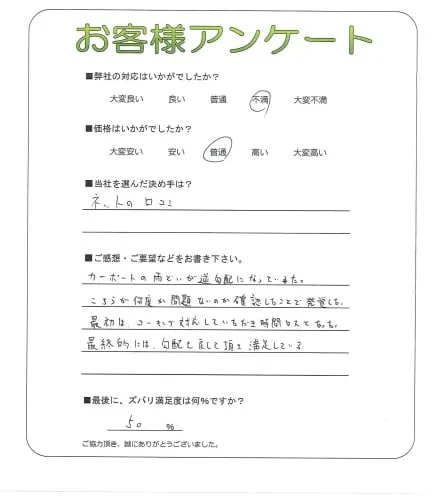 お客様アンケート
■弊社の対応はいかがでしたか？
大変良い 良い 普通 不満 大変不満
■価格はいかがでしたか？
大変安い 安い 普通 高い 大変高い
■当社を選んだ決め手は？
ネットの口コミ
■ご感想・ご要望などをお書き下さい。
カーポートの雨どいが逆勾配になっていた。
こちらが何度か問題ないのか確認したことで発覚した。
最初は、コーキング対応していただき時間ロスとなった。
最終的には、勾配を直して頂き満足している
■最後に、ズバリ満足度は何%ですか？
50 %
ご協力頂き、誠にありがとうございました。